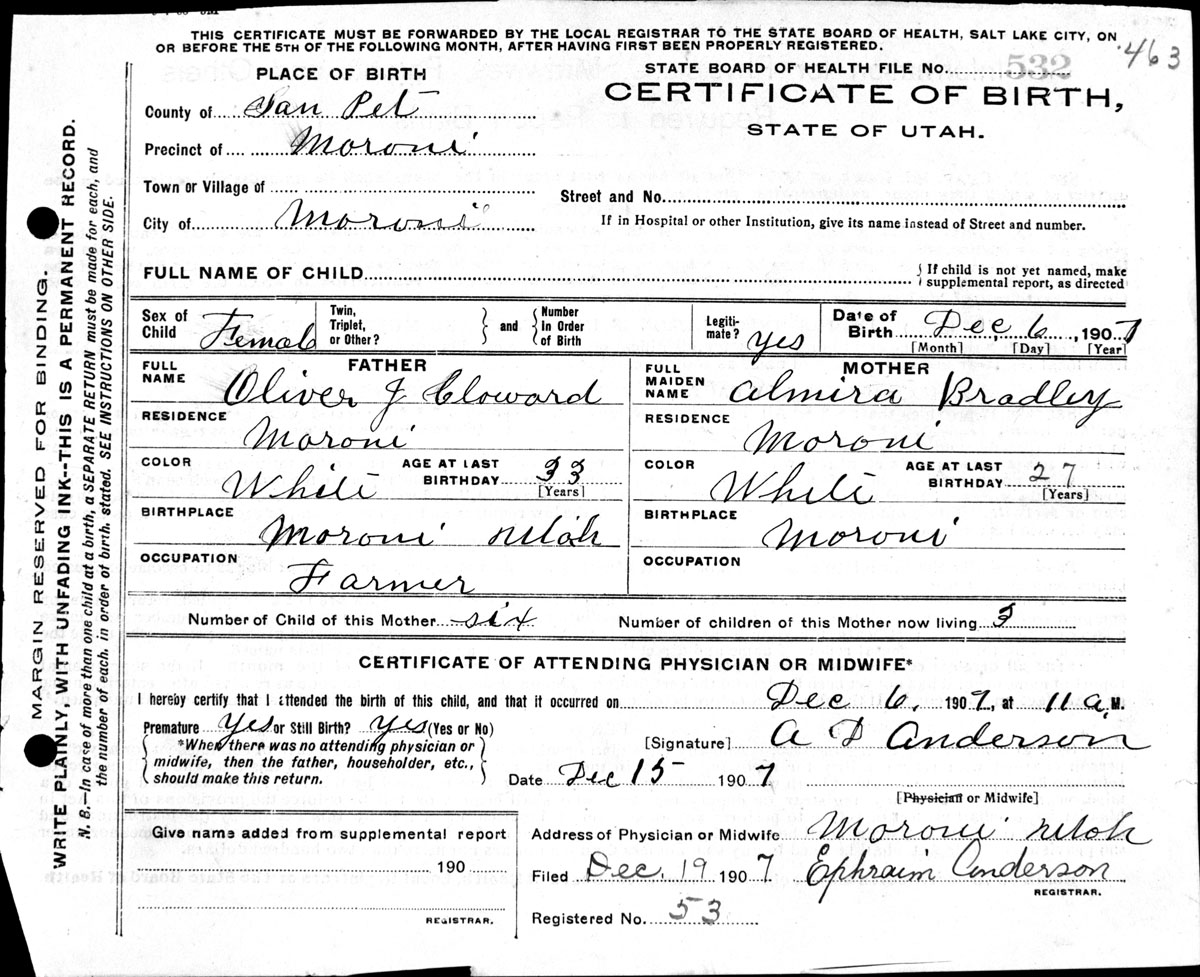 THIS CERTIFICATE MUST BE FORWARDED BY THE LOCAL REGISTRAR TO THE STATE BOARD OF HEALTH, SALT LAKE CITY, ON
OR BEFORE THE 5TH OF THE FOLLOWING MONTH, AFTER HAVING FIRST BEEN PROPERLY REGISTERED.
463
PLACE OF BIRTH
County of San Pet
Precinct of Moroni
Town or Village of
City of Moroni
STATE BOARD OF HEALTH FILE No. 532
CERTIFICATE OF BIRTH,
STATE OF UTAH.
Street and No.
If in Hospital or other Institution, give its name instead of Street and number.
FULL NAME OF CHILD
{ If child is not yet named, make
supplemental report, as directed
Sex of Child Female
Twin, Triplet, or Other? } and { Number In Order of Birth
Legiti-mate? yes
Date of Birth Dec, 6, 1907
[Month] [Day] [Year]
FATHER
FULL NAME Oliver J Cloward
RESIDENCE
Moroni
COLOR White AGE AT LAST BIRTHDAY 33
[Years]
BIRTHPLACE
Moroni Utah
OCCUPATION
Farmer
MOTHER
FULL MAIDEN NAME Almira Bradley
RESIDENCE
Moroni
COLOR White AGE AT LAST BIRTHDAY 27
[Years]
BIRTHPLACE
Moroni
OCCUPATION
Number of Child of this Mother six Number of children of this Mother now living 3
CERTIFICATE OF ATTENDING PHYSICIAN OR MIDWIFE*
I hereby certify that I attended the birth of this child, and that it occurred on Dec 6, 1907, at 11 a.M.
Premature yes or Still Birth? yes (Yes or No)
{ *When there was no attending physician or
midwife, then the father, householder, etc.,
should make this return. }
[Signature] A D Anderson
Date Dec 15 1907
[Physician or Midwife]
Give name added from supplemental report
190
REGISTRAR.
Address of Physician or Midwife Moroni Utah
Filed Dec. 19 1907 Ephraim Anderson
REGISTRAR.
Registered No. 53
MARGIN RESERVED FOR BINDING.
WRITE PLAINLY, WITH UNFADING INK--THIS IS A PERMANENT RECORD.
N. B.—In case of more than one child at a birth, a SEPARATE RETURN must be made for each, and
the number of each, in order of birth, stated. SEE INSTRUCTIONS ON OTHER SIDE.